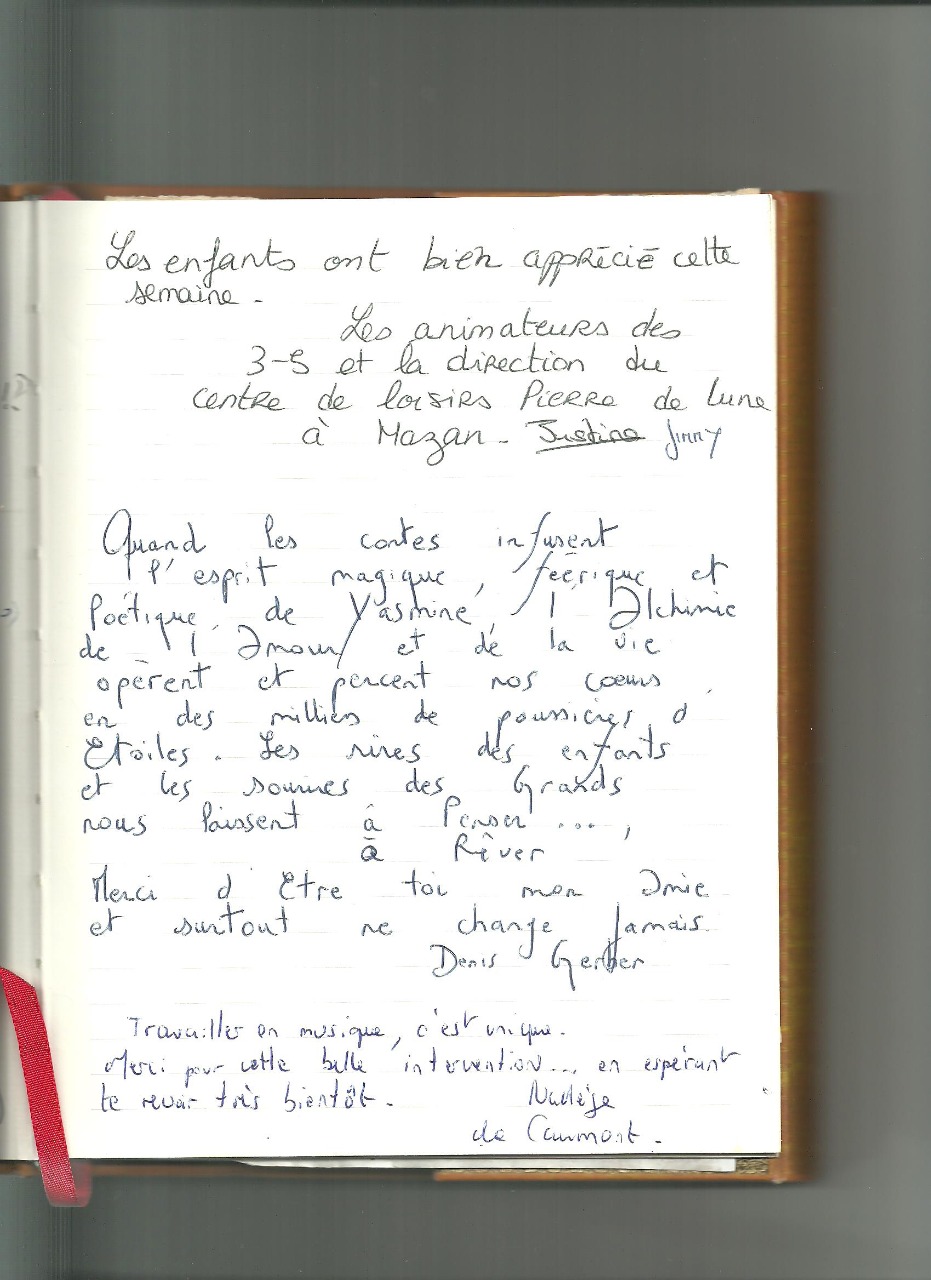 Les enfants ont bien apprécié cette
semaine.
Les animateurs des
3-5 et la direction du
centre de loisirs Pierre de lune
à Mazan. Justine Jinny
Quand les contes infusent
l'esprit magique, féérique et
Poétique, de Yasmine, l'Alchimie
de l'Amour et de la vie
opèrent et percent nos coeurs
en des milliers de poussières d
Etoiles. Les rires des enfants
et les sourires des Grands
nous laissent à Penser ...,
à Rêver
Merci d Etre toi mon Amie
et surtout ne change Jamais
Denis Gerber
Travailler en musique, c'est unique.
Merci pour cette belle intervention... en espérant
te revoir très bientôt. Nadège
de Caumont.